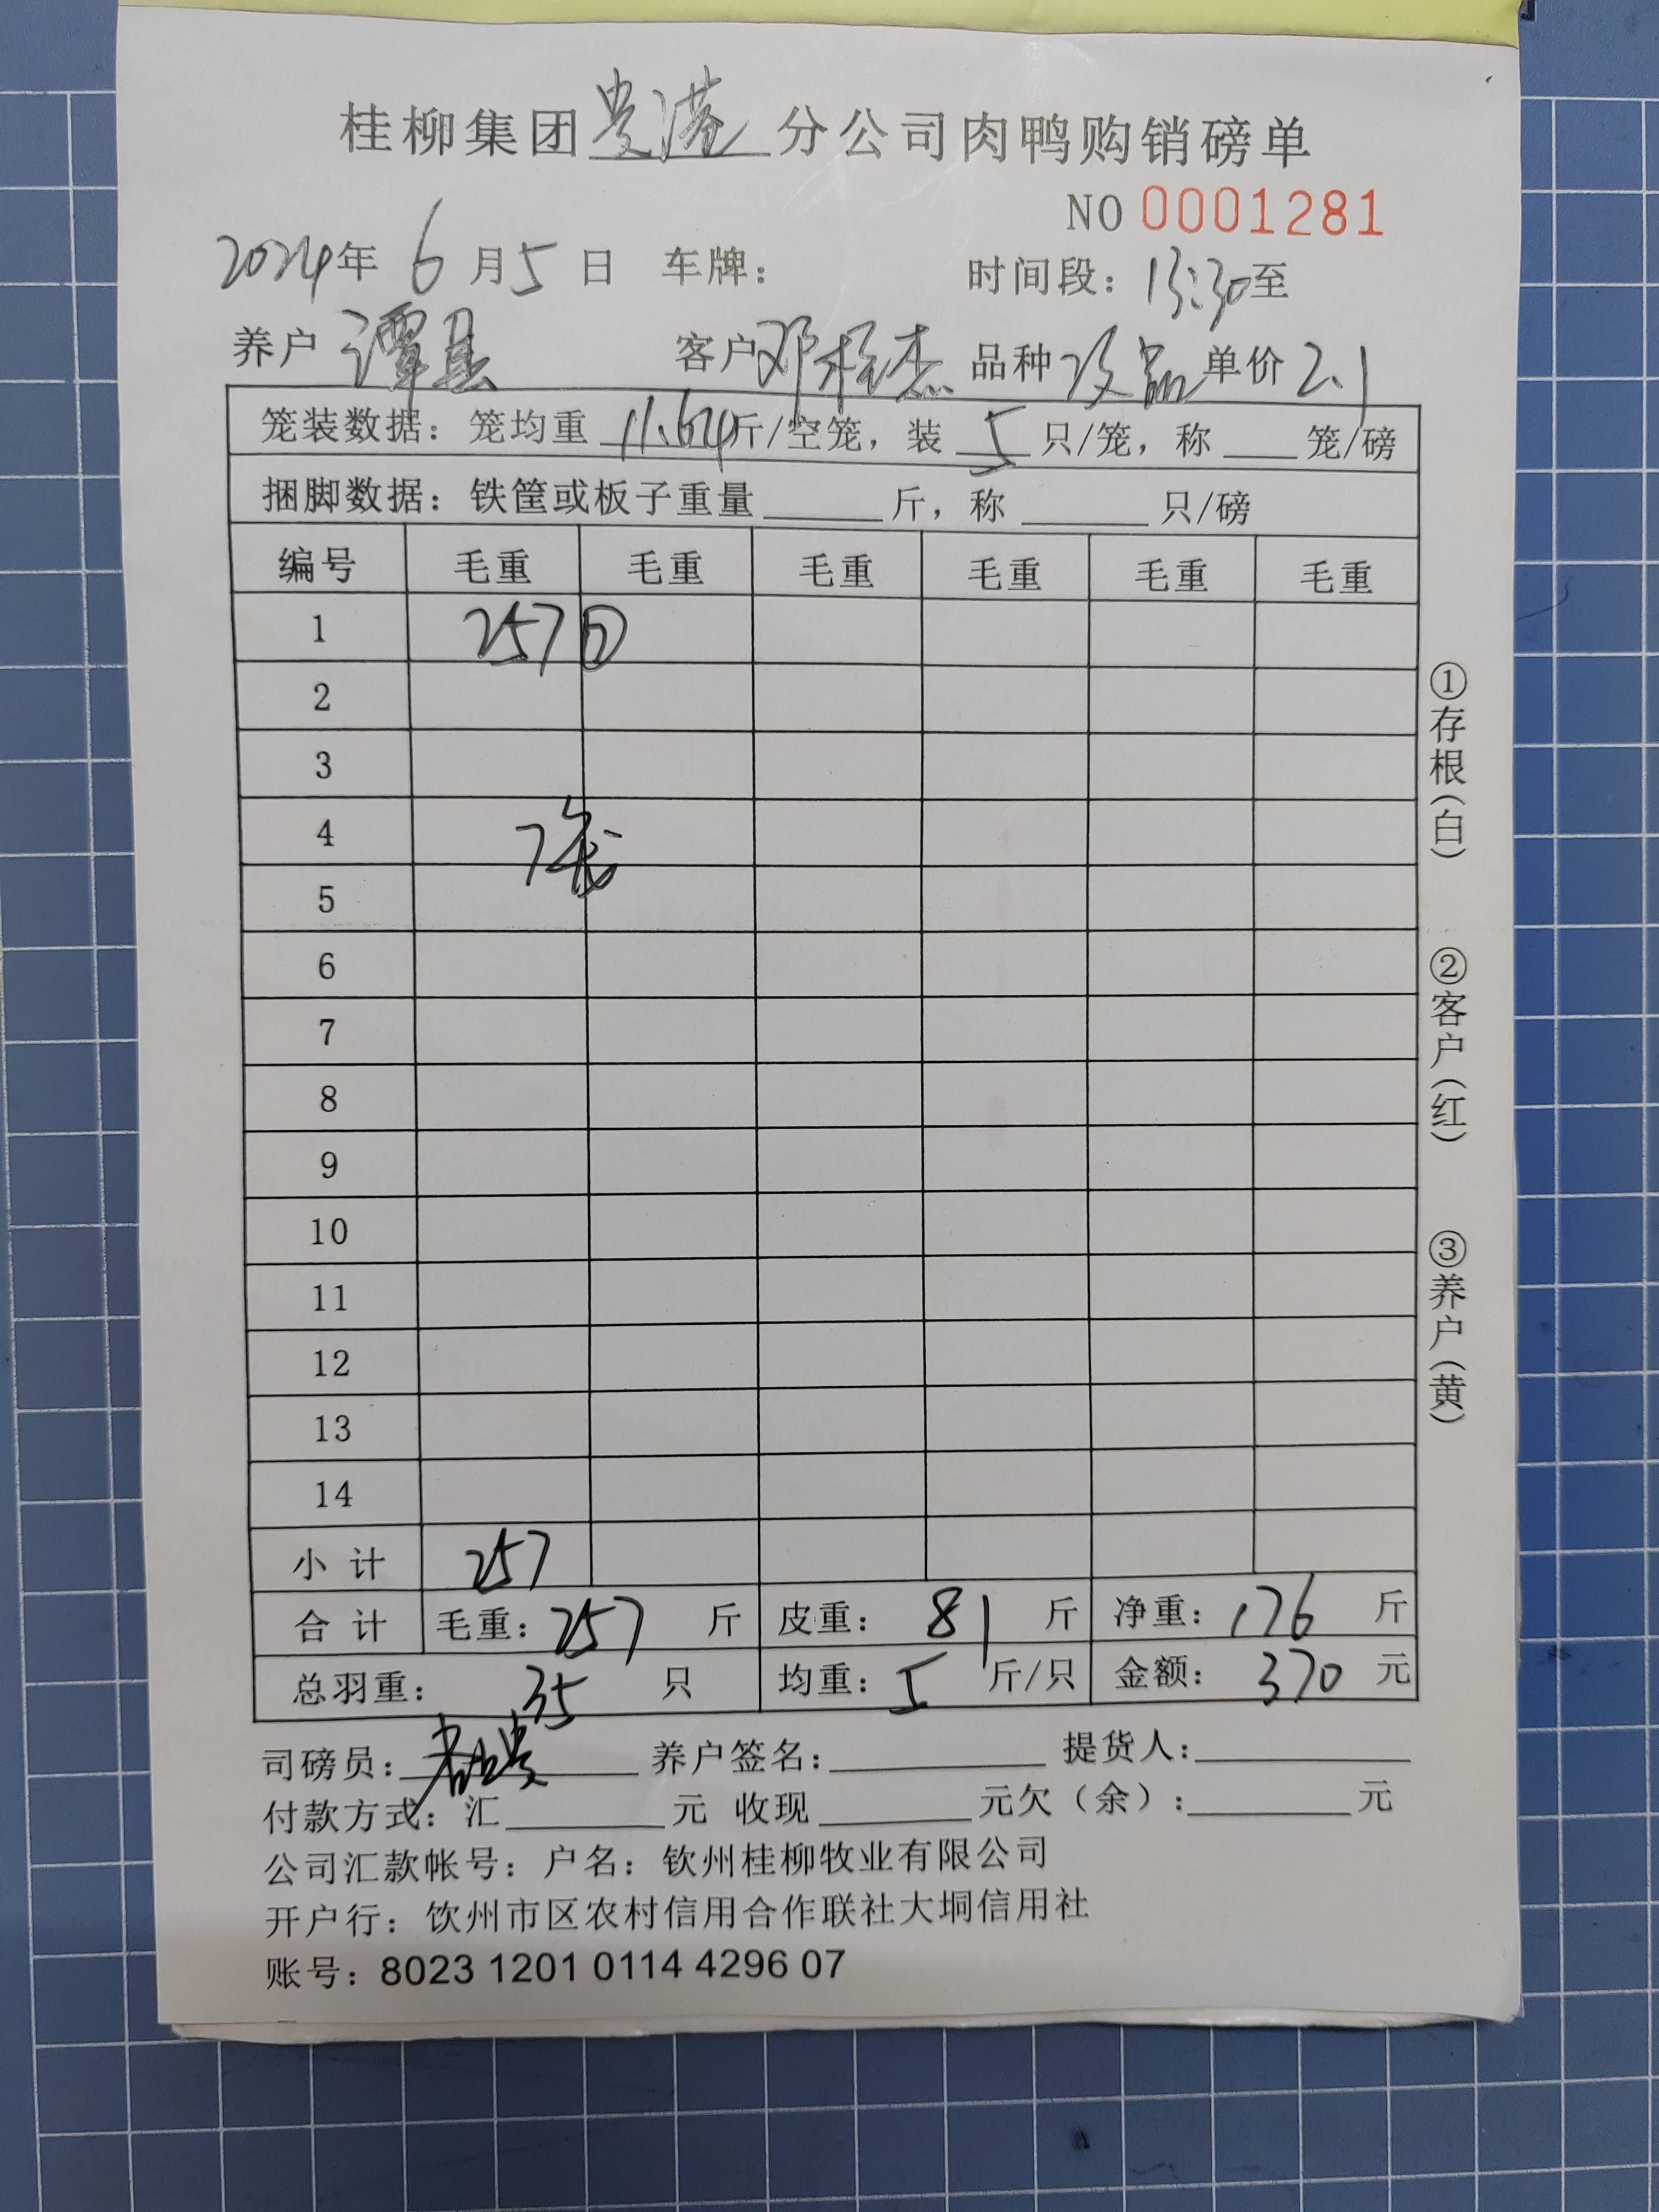 桂柳集团贵港分公司肉鸭购销磅单
NO 0001281
2024年 6月5日 车牌： 时间段：13:30至
养户 谭县 客户 邓杰 品种 次品 单价 2.1
笼装数据：笼均重 11.64斤/空笼，装 5 只/笼，称____笼/磅
捆脚数据：铁筐或板子重量______斤，称______只/磅
编号 毛重 毛重 毛重 毛重 毛重 毛重
1 257
2
3
4 7
5
6
7
8
9
10
11
12
13
14
小 计 257
合 计 毛重：257 斤 皮重：81 斤 净重：176 斤
总羽重：35 只 均重：5 斤/只 金额：370 元
司磅员： 养户签名：________ 提货人：________
付款方式：汇________元 收现________元欠（余）：________元
公司汇款帐号：户名：钦州桂柳牧业有限公司
开户行：饮州市区农村信用合作联社大垌信用社
账号：8023 1201 0114 4296 07
①存根（白）
②客户（红）
③养户（黄）